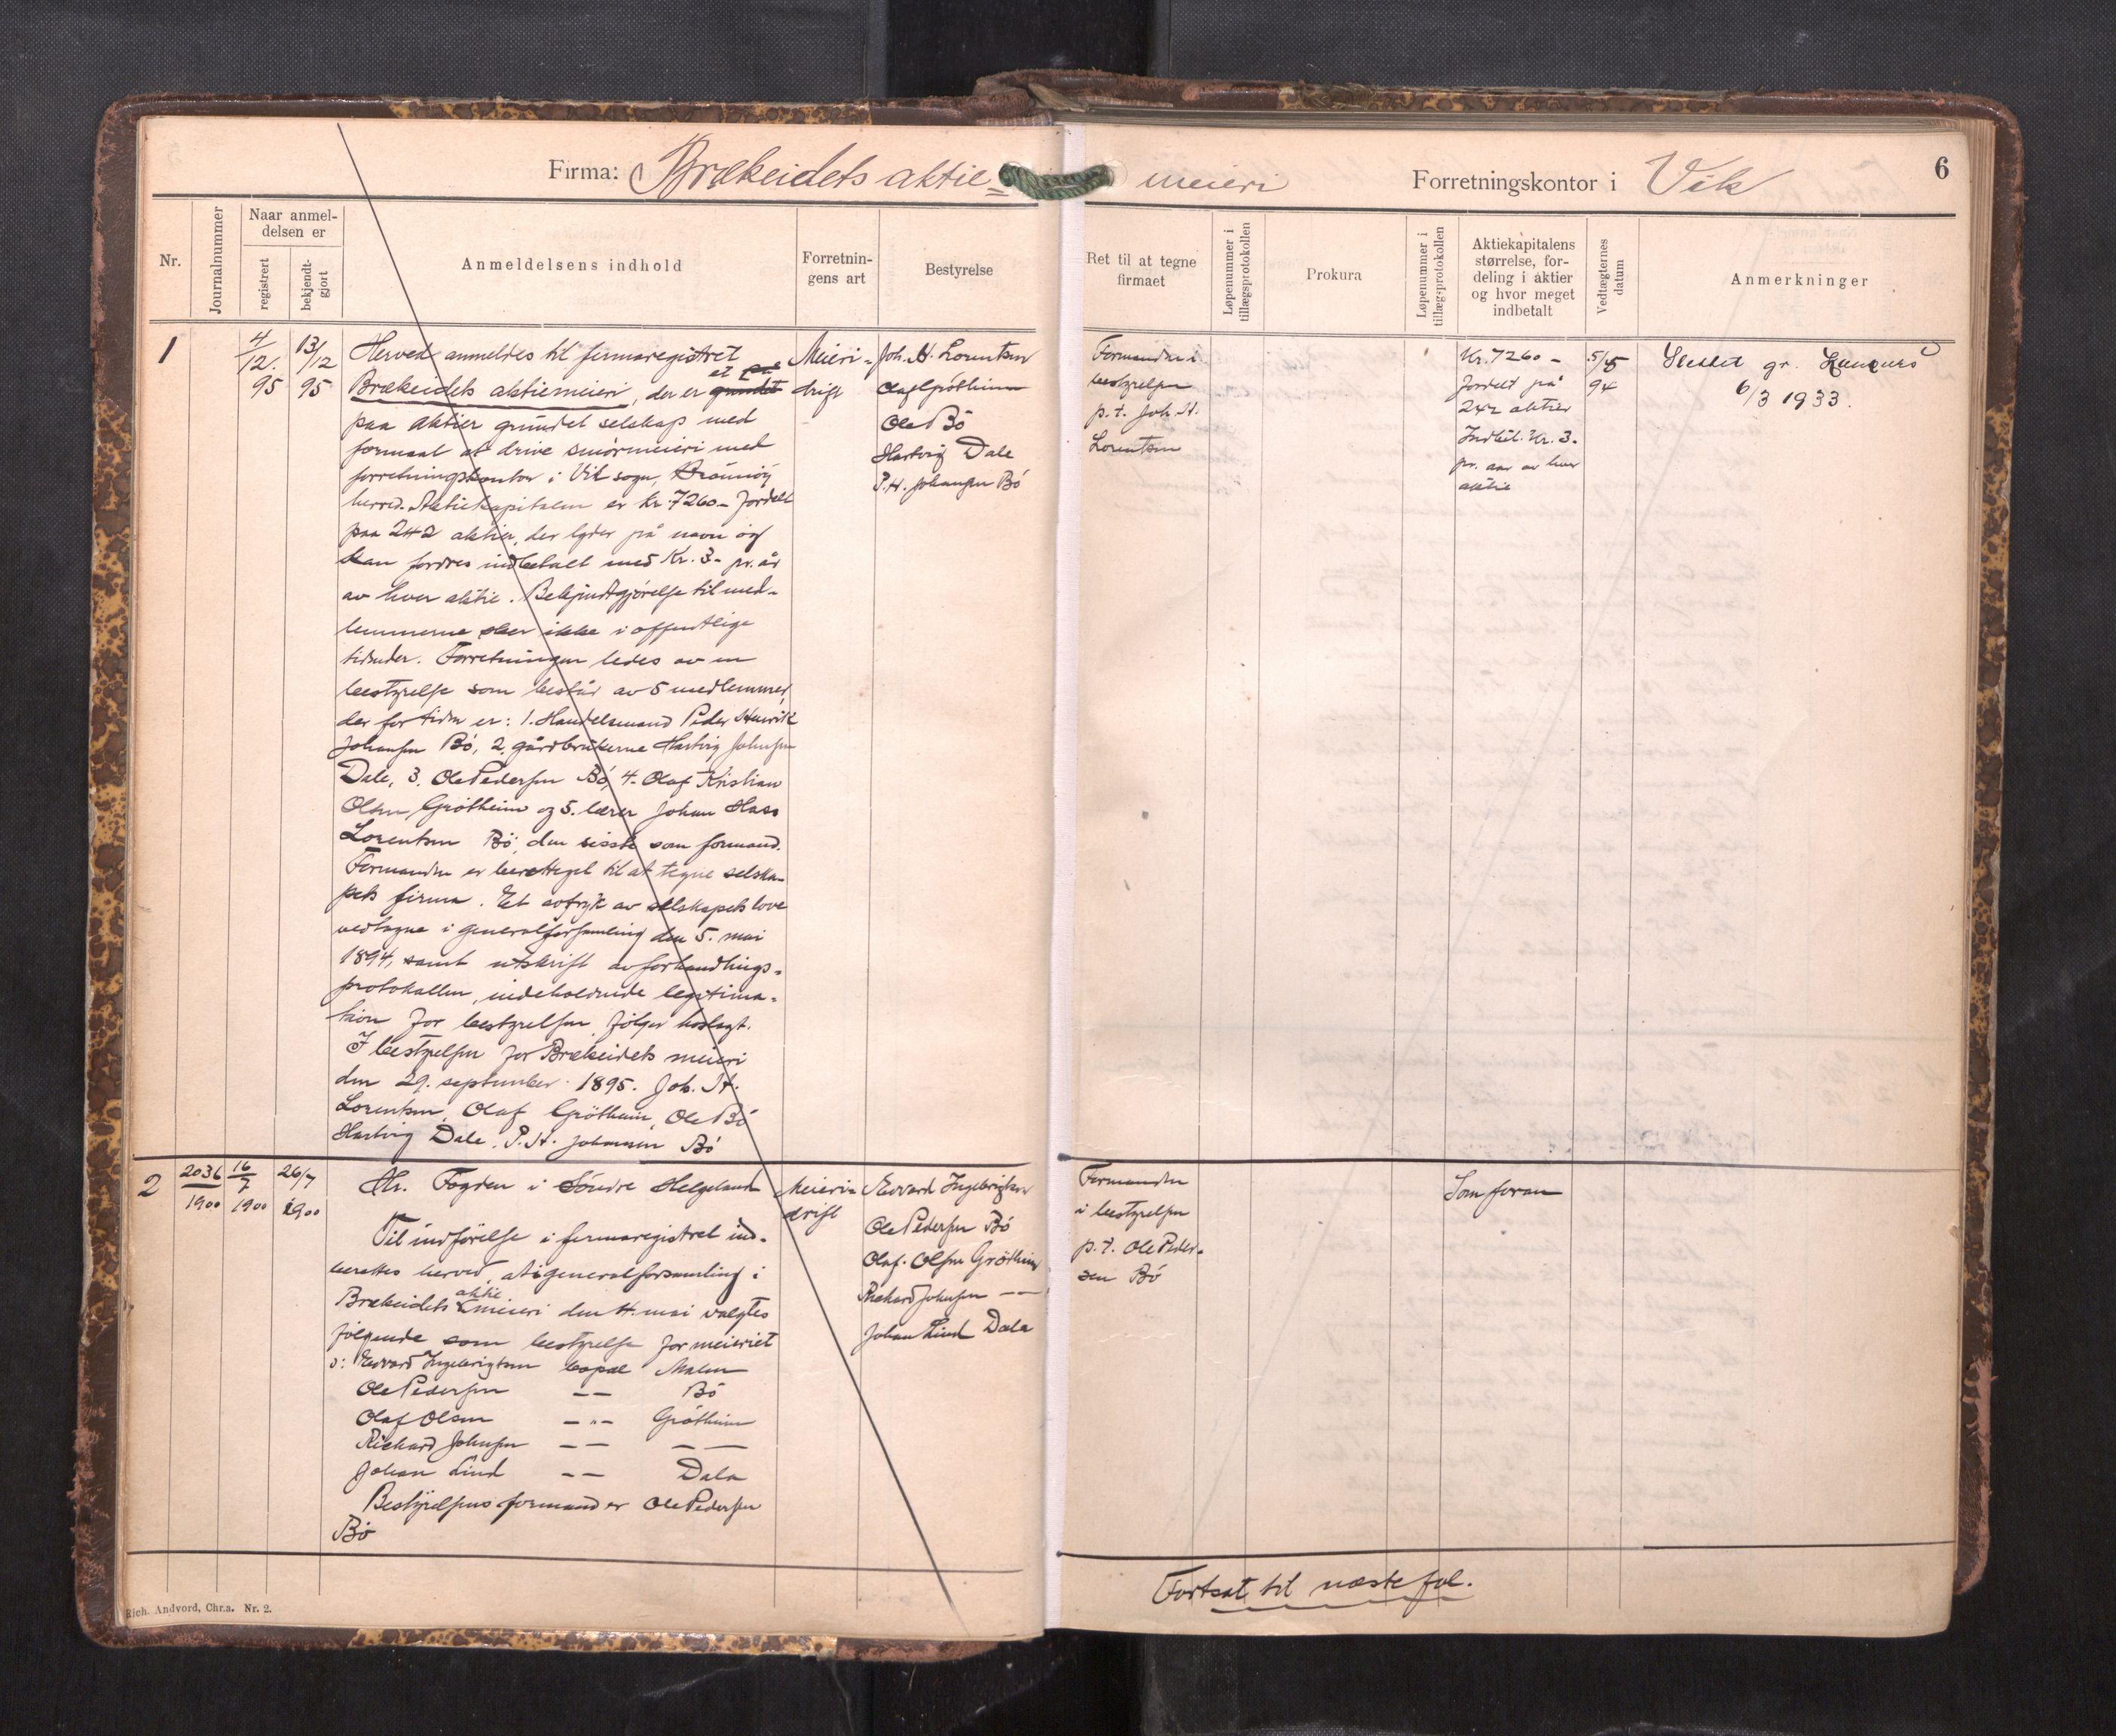 Firma: Brækeidets aktie=
meieri Forretningskontor i Vik 6
Nr.
Journalnummer
Naar anmel-
delsen er
registrert
bekjendt-
gjort
Anmeldelsens indhold
Forretnin-
gens art
Bestyrelse
Ret til at tegne
firmaet
Løpenummer i
tillægsprotokollen
Prokura
Løpenummer i
tillægsprotokollen
Aktiekapitalens
størrelse, for-
deling i aktier
og hvor meget
indbetalt
Vedtægternes
datum
Anmerkninger
1
4/12. 95
13/12 95
Herved anmeldes til firmaregistret
Brækeidets aktiemeieri, der er et
paa aktier grundet selskap med
formaal at drive smörmeieri med
forretningskontor i Vik sogn, Brönnöy
herred. Aktiekapitalen er Kr. 7260- fordelt
paa 242 aktier, der lyder på navn og
kan fordres indbetalt med Kr. 3- pr. år
av hver aktie. Bekjendtgjörelse til med-
lemmerne sker ikke i offentlige
tidender. Forretningen ledes av en
bestyrelse som består av 5 medlemmer,
der for tiden er: 1. Handelsmand Peder Henrik
Johansen Bö, 2. gårdbrukerne Hartvig Johnsen
Dale, 3. Ole Pedersen Bö, 4. Olaf Kristian
Olsen Grötheim og 5. lærer Johan Hass
Lorentsen Bö, den sisste som formand.
Formanden er berettiget til at tegne selska-
pets firma. Et avtryk av selskapets love
vedtagne i generalforsamling den 5. mai
1894, samt utskrift av forhandlings-
protokollen, indeholdende legitima-
tion for bestyrelsen, følger hoslagt.
I bestyrelsen for Brækeidets meieri
den 29. september 1895. Joh. H.
Lorentsen, Olaf Grötheim, Ole Bö
Hartvig Dale, P. H. Johansen Bö
Meieri-
drift
Joh. H. Lorentsen
Olaf Grötheim
Ole Bö
Hartvig Dale
P. H. Johansen Bö
Formanden i
bestyrelsen
p. t. Joh. H.
Lorentsen
Kr. 7260-
fordelt på
242 aktier
Indbet. Kr. 3-
pr. aar av hver
aktie
5/5
94
Slettet gr.
6/3 1933.
2
2036
1900
16/7
1900
26/7
1900
Hr. Fogden i Söndre Helgeland
Til indförelse i firmaregistret ind-
berettes herved, at i generalforsamling i
Brækeidets aktiemeieri den 4. mai valgtes
følgende som bestyrelse for meieriet
o: Edvard Ingebrigtsen bopæl Malen
Ole Pedersen -- Bö
Olaf Olsen -"- Grötheim
Richard Johnsen -- --
Johan Lind -- Dala
Bestyrelsens formand er Ole Pedersen
Bö
Meieri-
drift
Edvard Ingebrigtsen
Ole Pedersen Bö
Olaf Olsen Grötheim
Richard Johnsen --
Johan Lind Dala
Formanden
i bestyrelsen
p. t. Ole Peder-
sen Bö
Som foran
Fortsat til næste fol.
Rich. Andvord, Chr.a. Nr. 2.